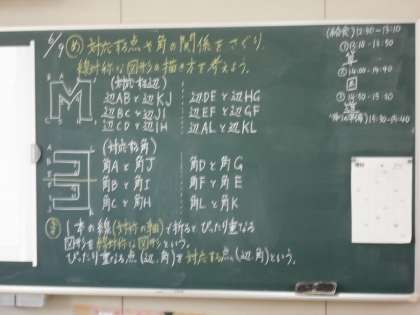 6/9 め 対応する点や角の関係をさぐり、
線対称な図形の描き方を考えよう。
(対応する辺)
辺ABと辺KJ 辺DEと辺HG
辺BCと辺JI 辺EFと辺GF
辺CDと辺IH 辺ALと辺KL
(対応する角)
角Aと角J 角Dと角G
角Bと角I 角Fと角E
角Cと角H 角Lと角K
1本の線(対称の軸)で折ると、ぴったり重なる
図形を線対称な図形という。
ぴったり重なる点(辺、角)を対応する点(辺、角)という。
(給食) 12:30-13:10
算
国
14:50-15:30
道
15:30-15:40